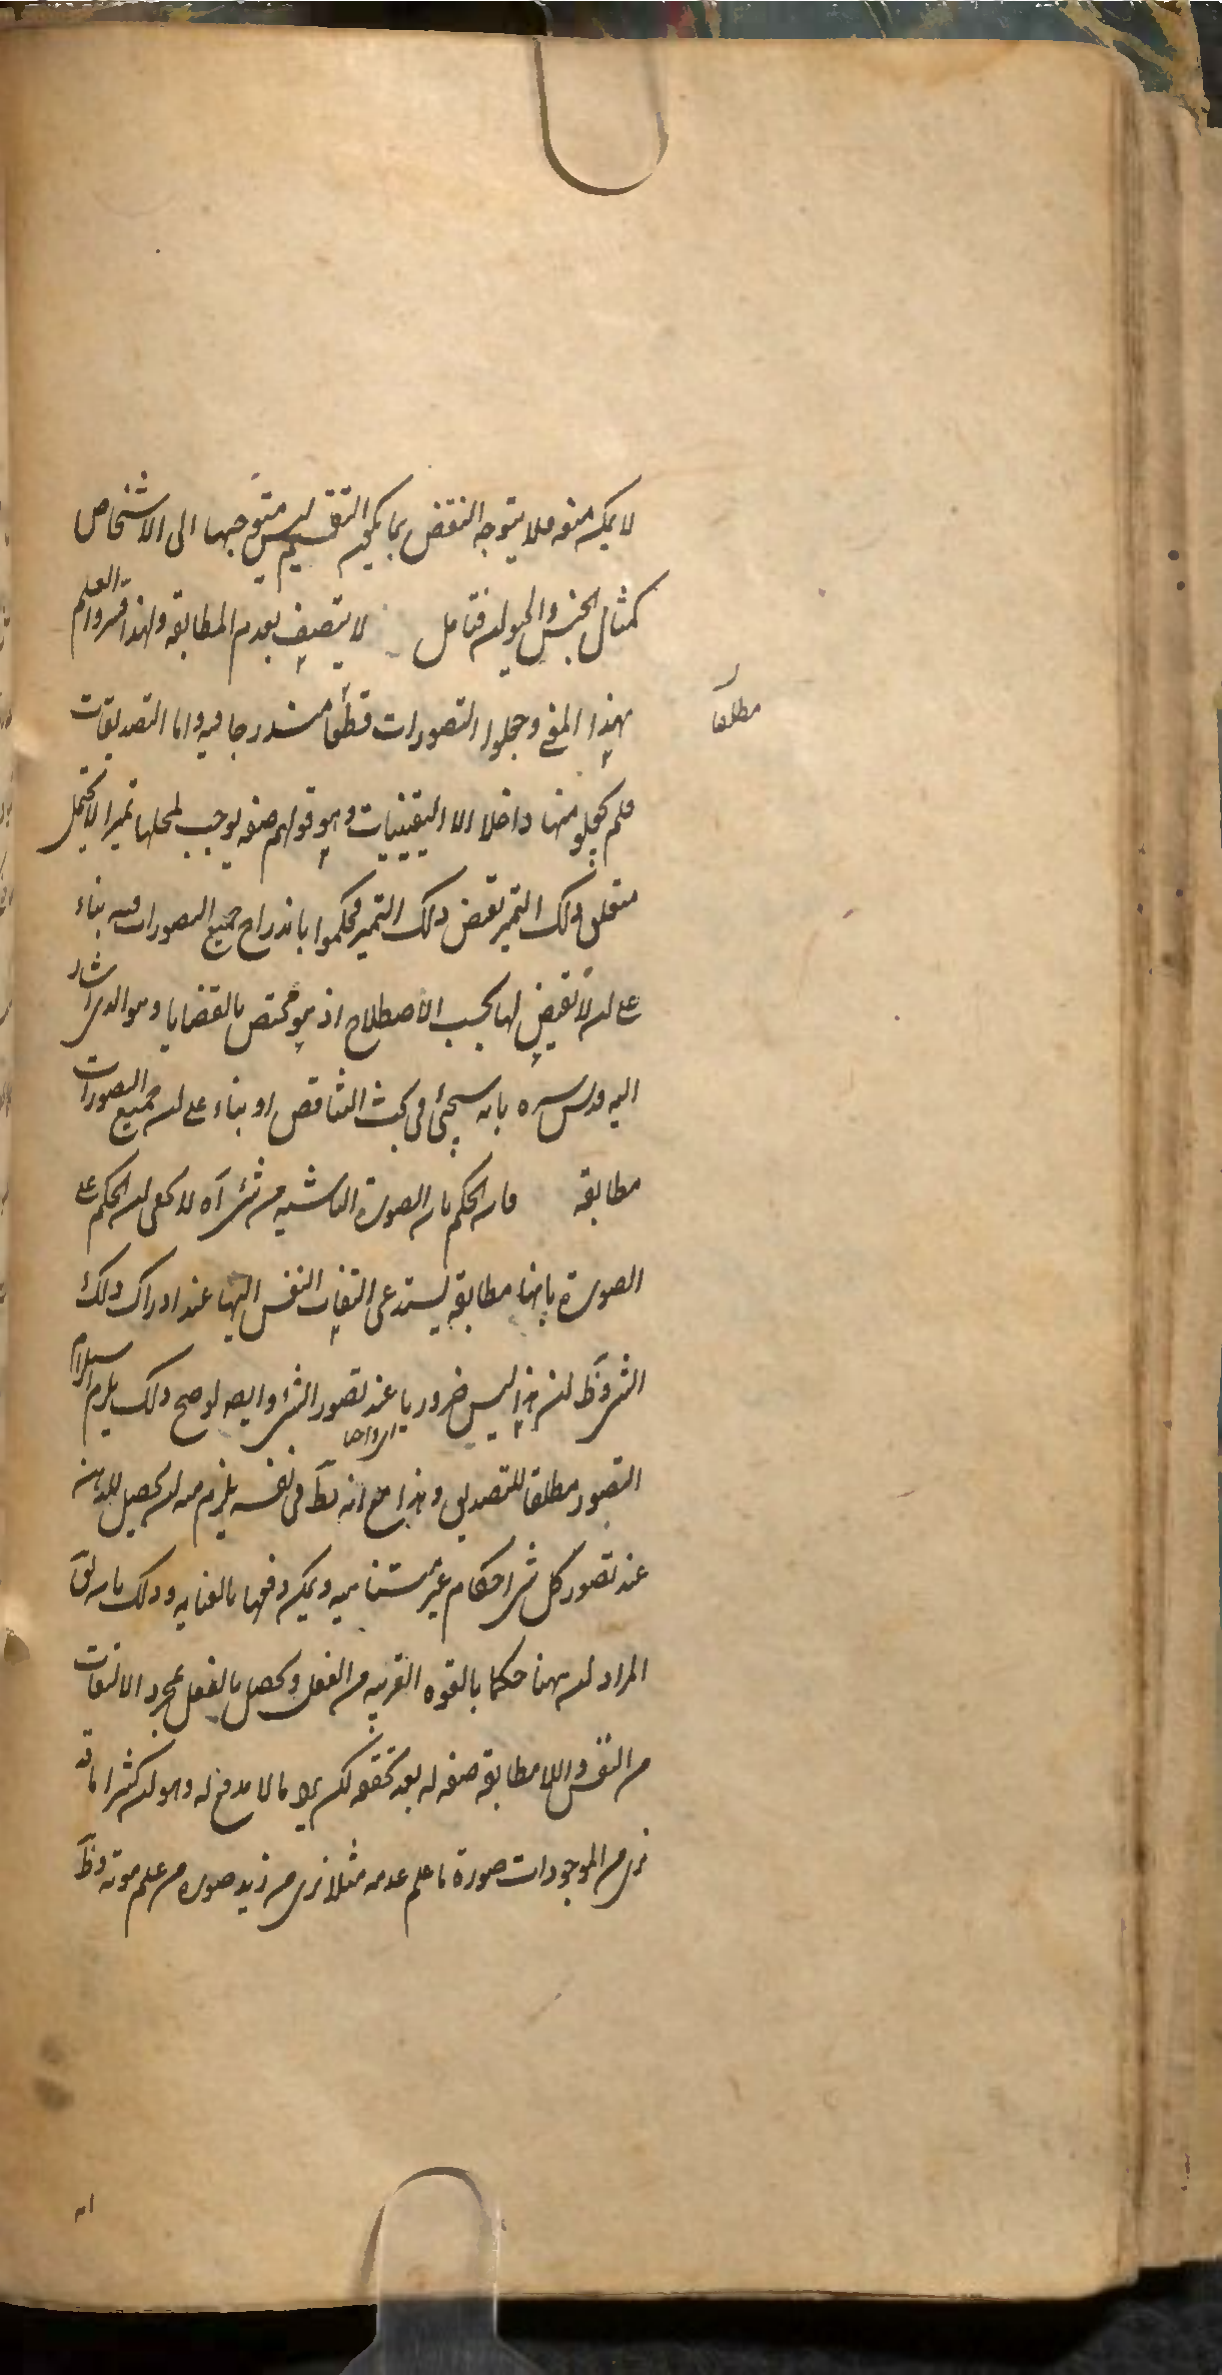 لا يمكن منعه فلا يتوجه النقض بما يكون التقسيم متوجها الى الاشخاص
كمثال الجنس والحيوان فتأمل لا يتصف بعدم المطابقة ولهذا فسروا العلم
بهذا المعنى وجعلوا التصورات قطعا مندرجا فيه واما التصديقات
مطلقا
فلم يجعلوا منها داخلا الا اليقينيات وهو قولهم صفة يوجب لمحلها تميزا لا يحتمل
متعلق ذلك التميز نقيض ذلك التميز فحكموا باندراج جميع التصورات فيه بناء
على ان لا نقيض لها بحسب الاصطلاح اذ هو مختص بالقضايا وهو الذي اشار
اليه قدس سره بانه سيجئ في بحث التناقض او بناء على ان جميع التصورات
مطابقة فان الحكم بان الصورة الناشية من شئ آه لا يخفى ان الحكم على
الصورة بانها مطابقة يستدعى التفات النفس اليها عند ادراك ذلك
الشئ وظ ان هذا ليس ضروريا عند تصور الشئ وايضا لو صح ذلك يلزم استلزام
التصور مطلقا للتصديق وهذا مع انه بط في نفسه يلزم منه ان يحصل للذهن
عند تصور كل شئ احكام غير متناهية ويمكن دفعها بالعناية وذلك بان يق
المراد ان ههنا حكما بالقوه القريبه من الفعل ويحصل بالفعل بمجرد الالتفات
من النفس واللا مطابقة صفة له بعد تحققه لكن يرد ما لا مدفع له وهو ان كثيرا ما قد
نرى من الموجودات صورة ما علم عدمه مثلا نرى من زيد صورة من علم موته وظ
انه